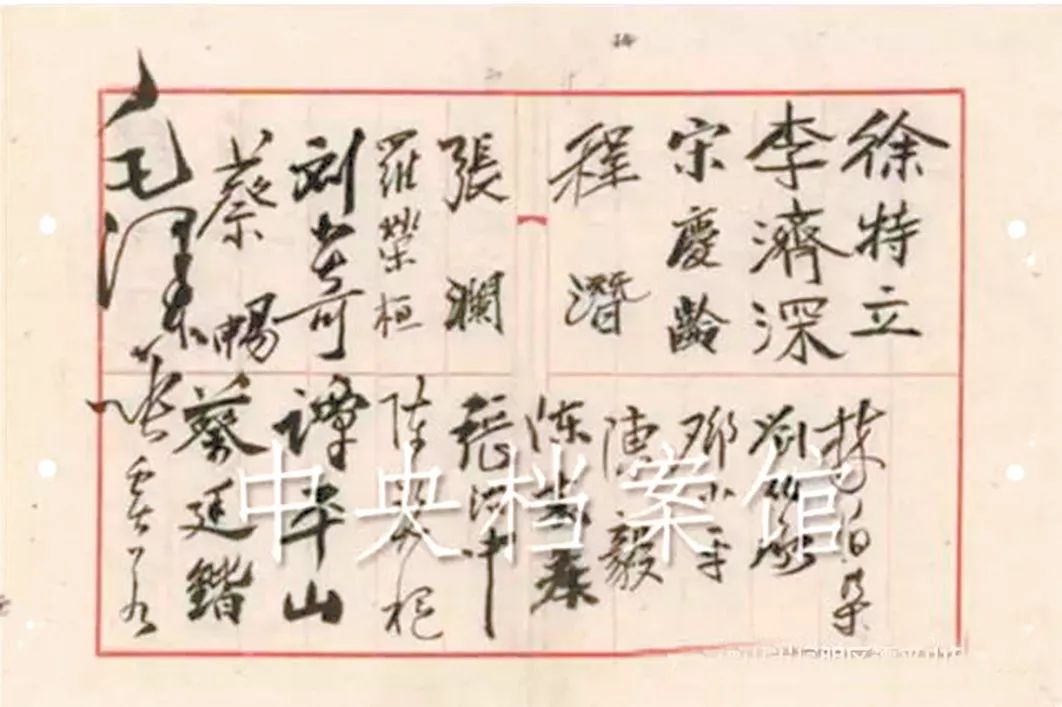 徐特立
李濟深
宋慶齡
程潛
張瀾
羅榮桓
刘少奇
蔡暢
毛泽东
林伯渠
刘伯承
邓小平
陳毅
陈
張治中
陈
譚平山
蔡廷鍇
中央档案馆